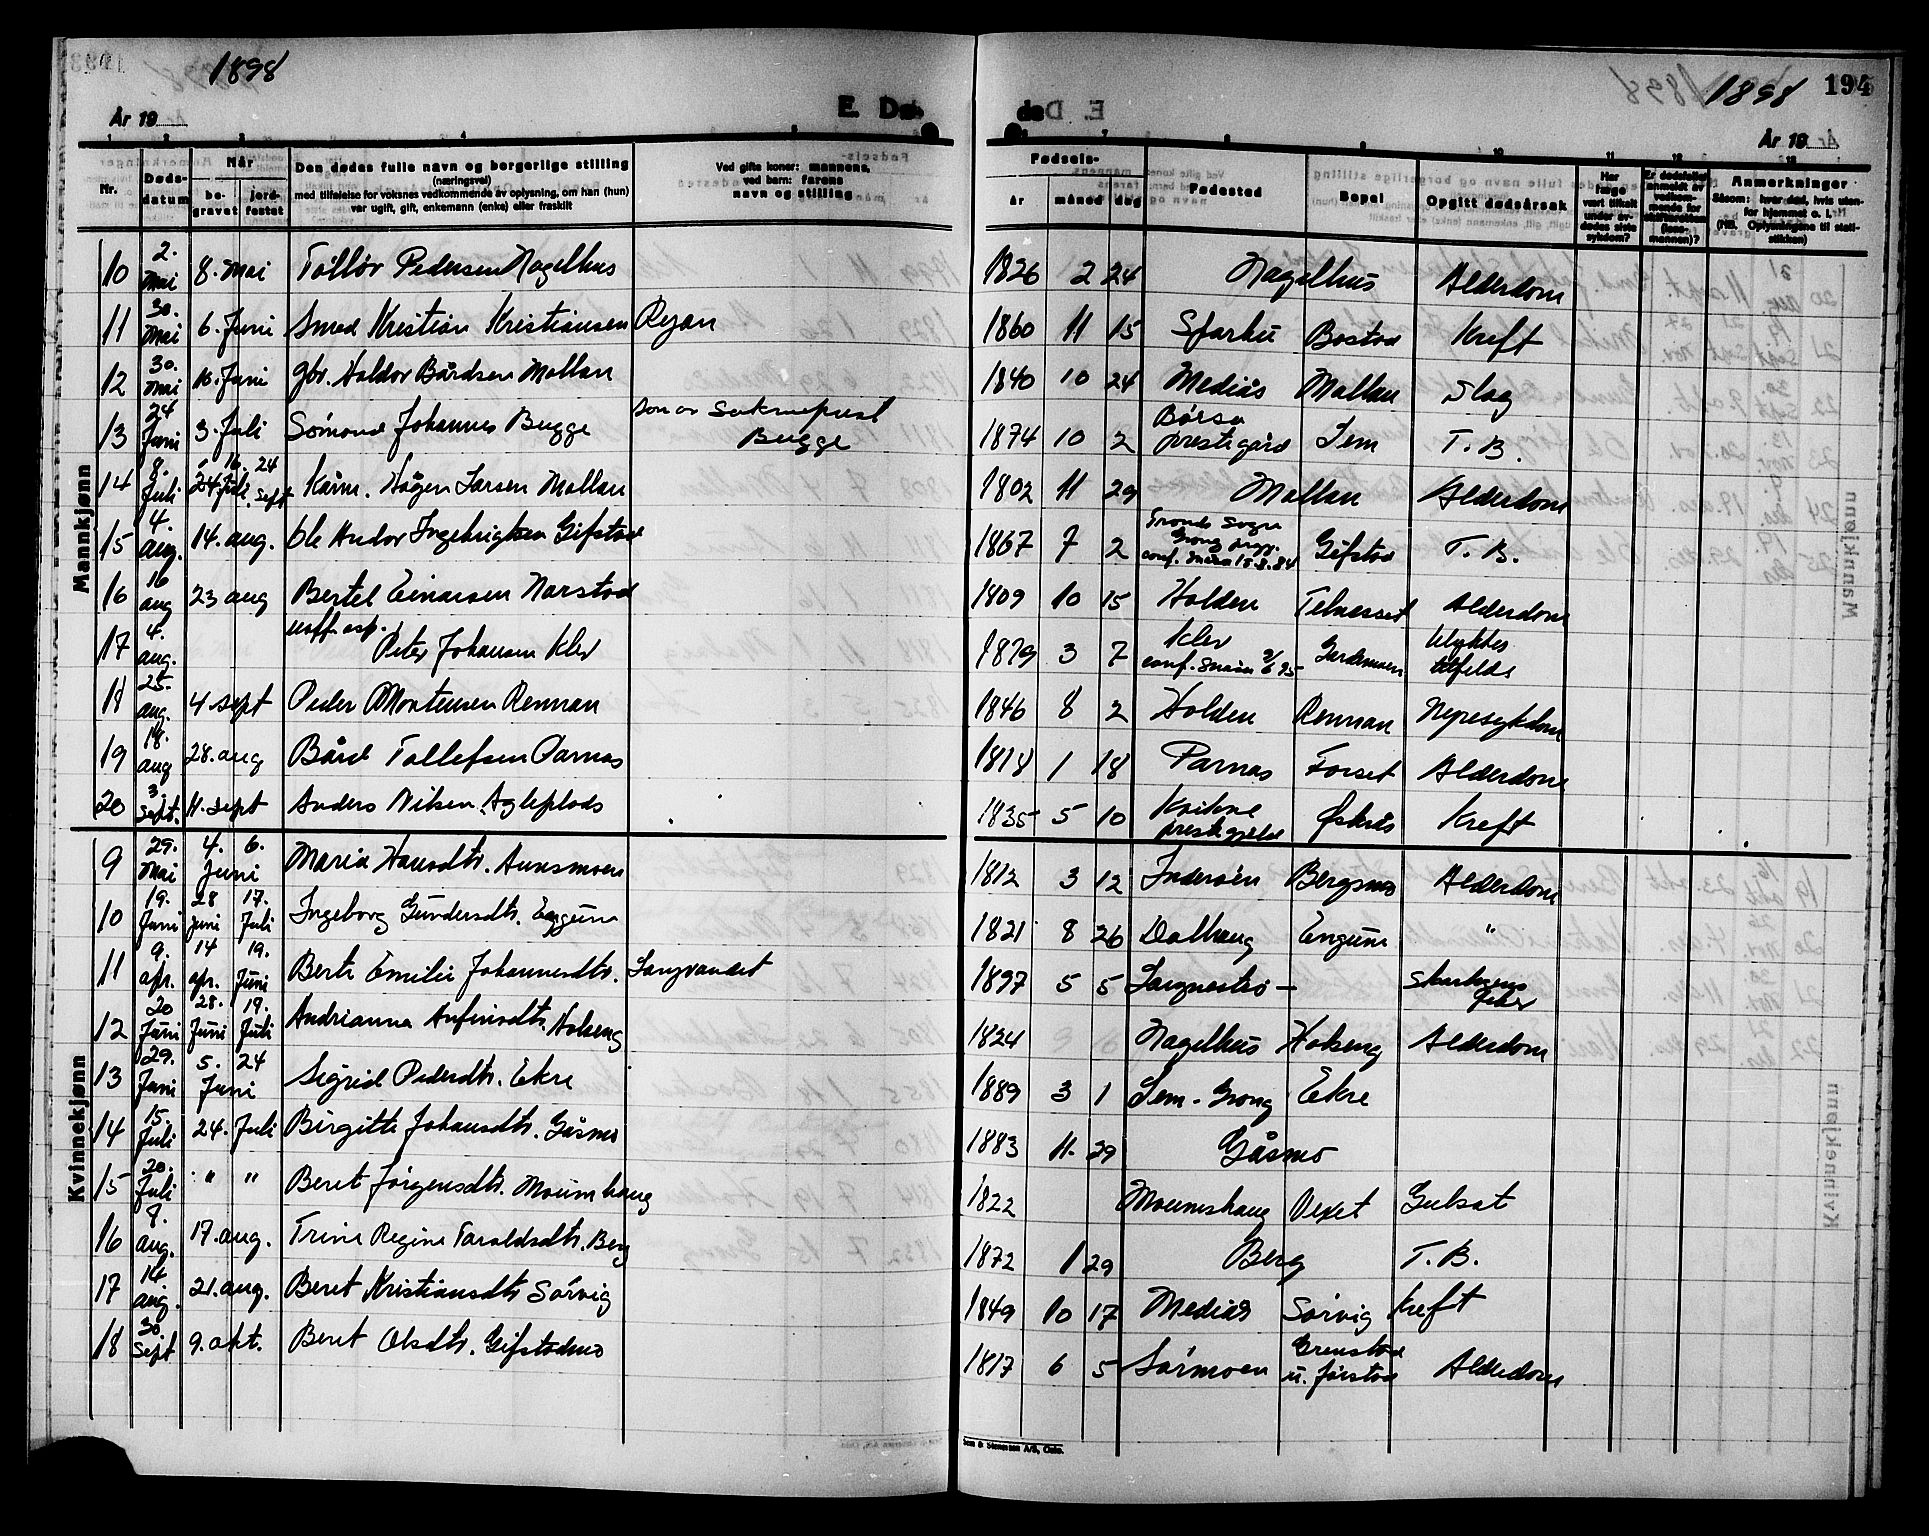 1898
År 19
E. Dø-
1 2 3 4 5
Nr. Døds-datum Når be-gravet jord-festet Den dødes fulle navn og borgerlige stilling (næringsvei) med tilføielse for voksnes vedkommende av oplysning, om han (hun) var ugift, gift, enkemann (enke) eller fraskilt Ved gifte koner: mannens, ved barn: farens navn og stilling
de
1898 194
År 19
Fødsels- år måned dag Fødested Bopel Opgitt dødsårsak Har læge vært tilkalt under av-dødes siste sykdom? Er dødsfallet anmeldt av vedkom-mende for skifteretten (lens-mannen)? Anmerkninger Såsom: hvor død, hvis uten-for hjemmet o. l. (NB. Oplysningene til stati-stikken)
Mannkjønn
10 2. Mai 8. Mai Tollør Pedersen Nagelhus 1826 2 24 Nagelhus Alderdom
11 30. Mai 6. Juni Smed Kristian Kristiansen Ryan 1860 11 15 Sparbu Bostad Kreft
12 30. Mai 10. Juni gbr. Haldor Bårdsen Mollan 1840 10 24 Mediås Mollan Slag
13 24 Juni 3. Juli Sømond Johannes Bugge Son av Sokneprest Bugge 1874 10 2 Børsa prestegård Sem T. B.
14 8. Juli 24. Juli 24 Sept Kårm. Hågen Larsen Mollan 1802 11 29 Mollan Alderdom
15 4. aug. 14. aug. Ole Andor Ingebrigtsen Gifstad 1867 7 2 Tronds Sogn Grong prgj. conf. Snåsa 15.8.84 Gifstad T. B.
16 16 aug 23 aug Bertel Einarsen Narstad 1809 10 15 Holden Telnesset Alderdom
17 4. aug. uoff. asp. Peter Johansen Klev 1879 3 7 Klev conf. Snåsa Gardemoen Ulykkes tilfelde
18 25. aug. 4. sept Peder Mortensen Rennan 1846 8 2 Holden Rennan Nyresykdom
19 18. aug 28. aug Bård Tollefsen Parnas 1818 1 18 Parnas Forset Alderdom
20 3. Sept. 11. sept Anders Nilsen Agleplads 1835 5 10 Kvikne prestegjeld Øskrås Kreft
Kvinnekjønn
9 29. Mai 4. 6. Juni Maria Hansdtr. Aunsmoen 1812 3 12 Inderøen Bergsmo Alderdom
10 19. Juni 28 Juni 17. Juli Ingeborg Gundersdtr. Eggum 1821 8 26 Dalhaug Engum "
11 9. apr. 14 apr. 19. Juni Berte Emilie Johannesdtr. Langvandet 1897 5 5 Langnestrø - Skarlagens feber
12 20 Juni 28. Juni 19. Juli Andrianna Anfinsdtr. Holseng 1824 Nagelhus Holseng Alderdom
13 29. Juni 5. 24 Juni Sigrid Pedersdtr. Ekre 1889 3 1 Sem - Grong Ekre
14 15. Juli 24. Juli Birgitte Johansdtr. Gåsmo 1883 11. 29 Gåsmo
15 20. Juli " " Beret Jørgensdtr. Moumshaug 1822 Moumshaug Vexet Gulsot
16 8. aug. 17. aug. Trine Regine Taraldsdtr. Berg 1872 1 29 Berg T. B.
17 14. aug. 21. aug. Beret Kristiansdtr Sørvig 1849 10 17 Mediås Sørvig Kreft
18 30. Sept 9. okt. Beret Olsdtr. Gifstadmo 1817 6 5 Sørmoen Grenstad u. Jørstad Alderdom
Sem & Stenersen A/S, Oslo.